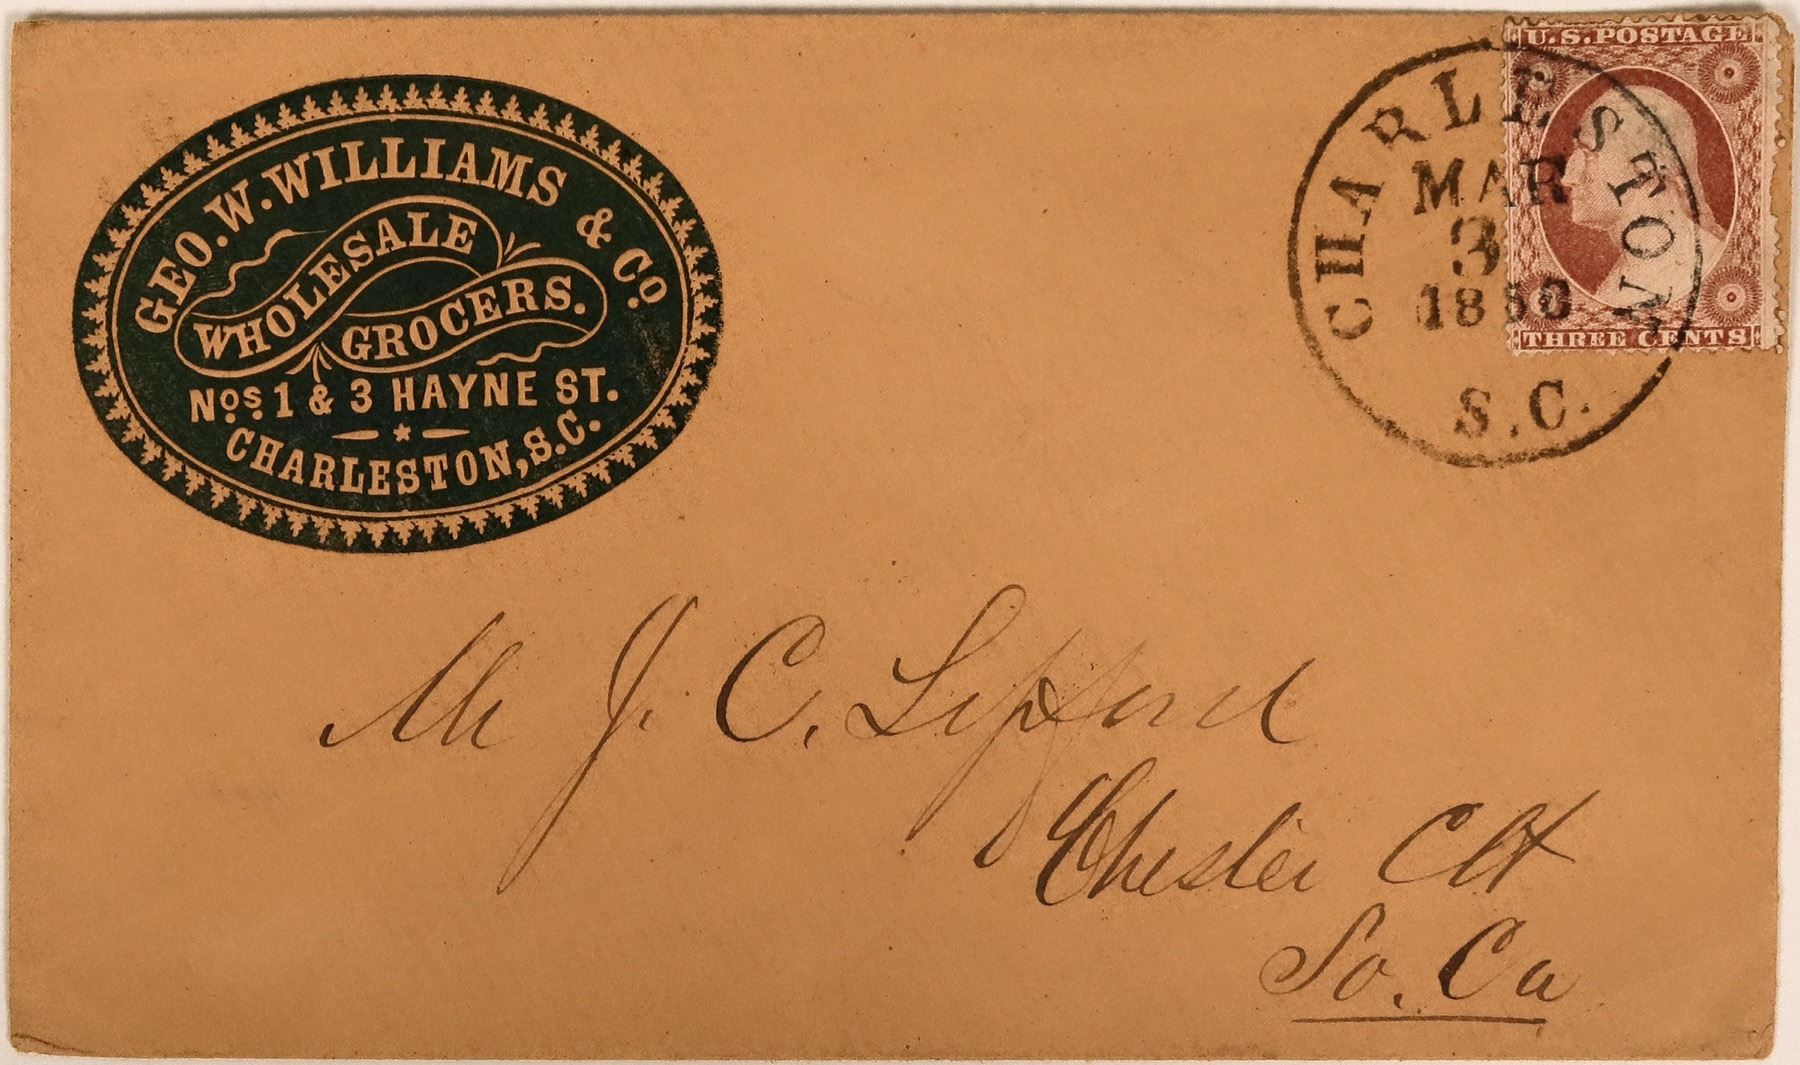 GEO. W. WILLIAMS & Co.
WHOLESALE
GROCERS.
Nos. 1 & 3 HAYNE ST.
CHARLESTON, S.C.
CHARLESTON
MAR
3
S.C.
U.S. POSTAGE
THREE CENTS
Mr J. C. Lipford
Chester CH
So. Ca